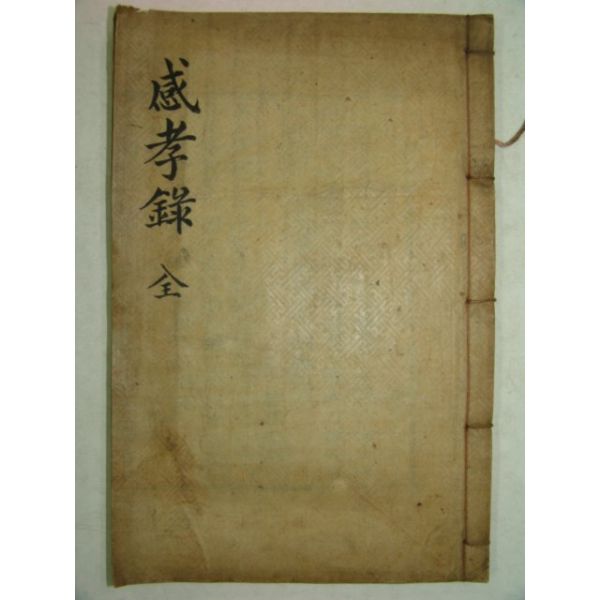 感孝錄
全